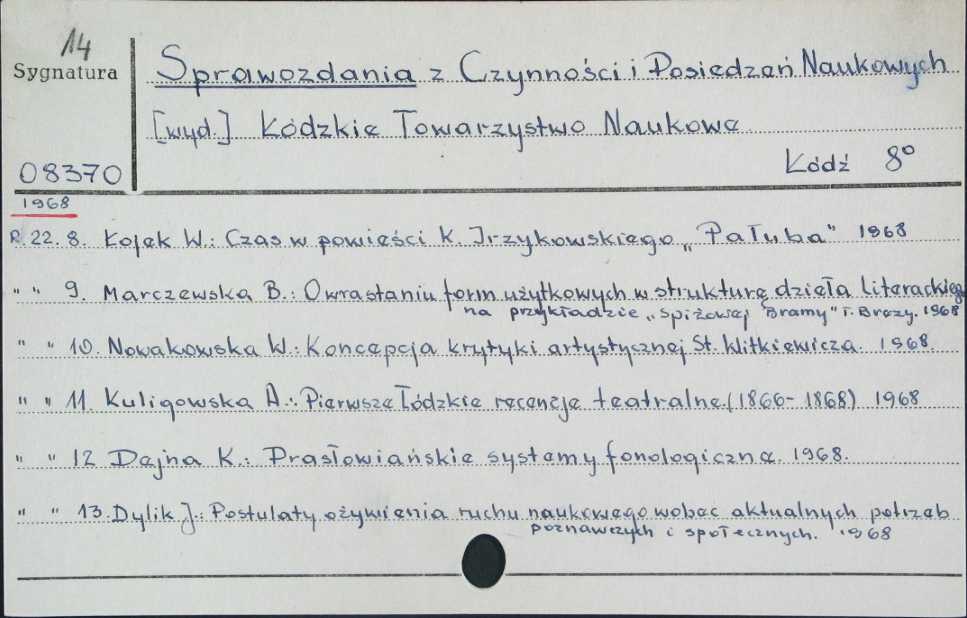 14
Sygnatura
Sprawozdania z Czynności i Posiedzeń Naukowych
[wyd.] Łódzkie Towarzystwo Naukowe
08370
Łódź 8°
1968
R. 22. 8. Łojek W.: Czas w powieści K. Irzykowskiego „Pałuba" 1968
" " 9. Marczewska B.: O wrastaniu form użytkowych w strukturę dzieła literackiego
na przykładzie „Spiżowej Bramy" T. Brezy. 1968
" " 10. Nowakowska W.: Koncepcja krytyki artystycznej St. Witkiewicza. 1968.
" " 11. Kuligowska A.: Pierwsze Łódzkie recenzje teatralne. (1866-1868) 1968
" " 12 Dejna K.: Prasłowiańskie systemy fonologiczne. 1968.
" " 13. Dylik J.: Postulaty ożywienia ruchu naukowego wobec aktualnych potrzeb
poznawczych i społecznych. 1968